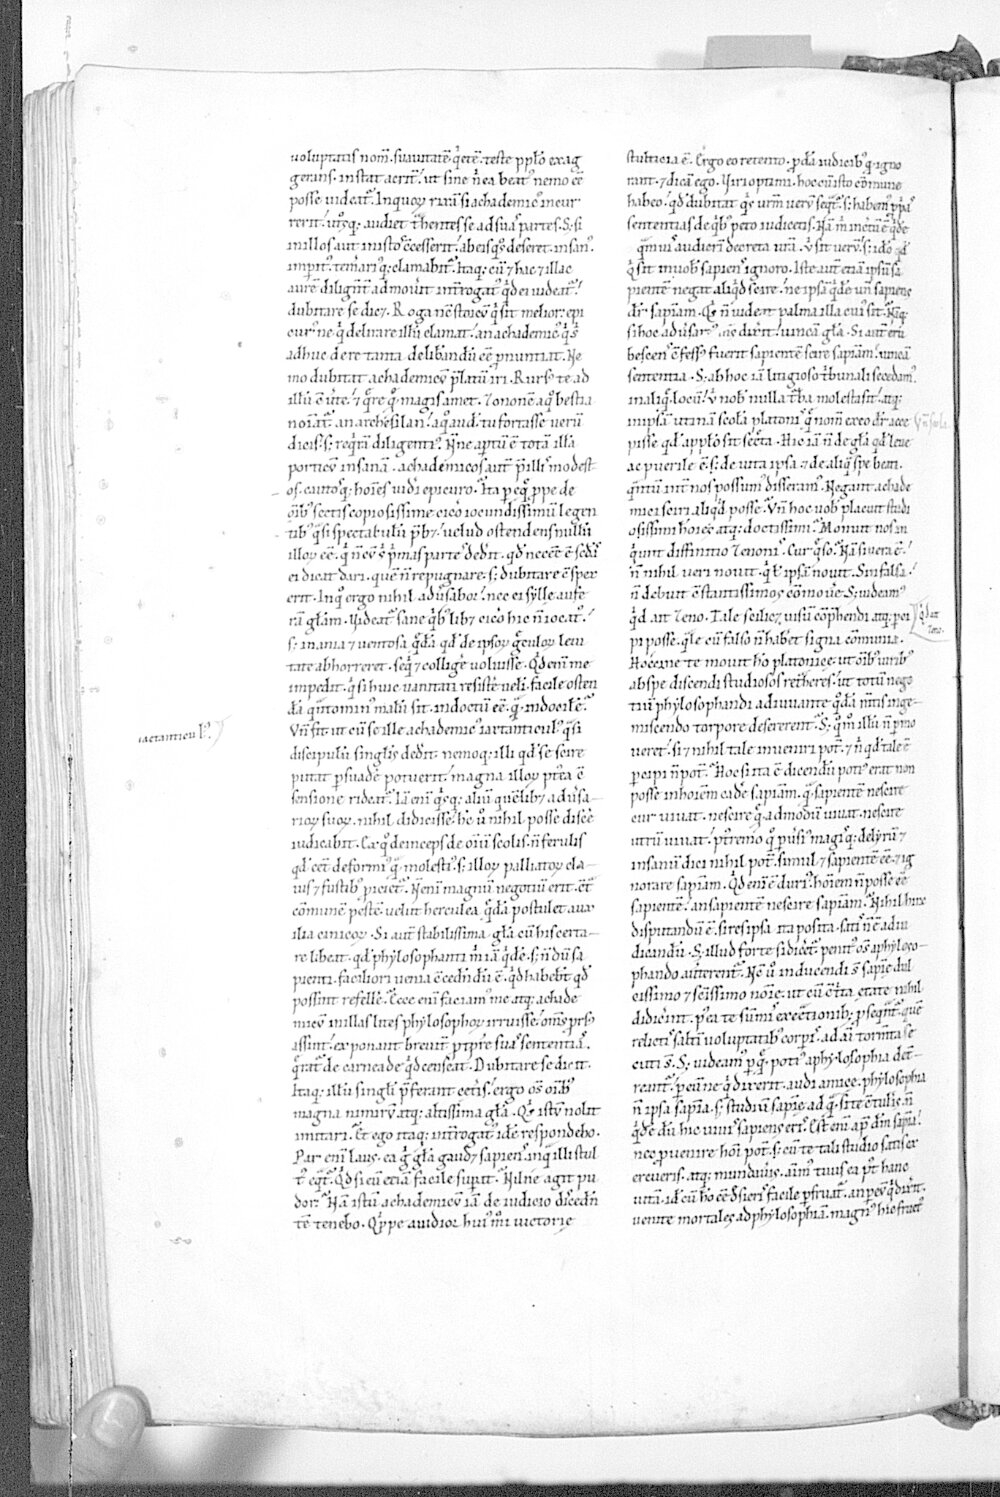 voluptatis nom̄. suavitatē q̄rē. teste pp̄lo exag
gerans. instat acrit̄. ut sine n̄ ea beat᾽ nemo eē
posse videat᾽. In quoꝝ rixā si achademic᾽ incur
rerit. ut᾽sq; audiet t̄hentes se ad suas partes. S; si
in illos aut in istos c̄cesserit. ab eis q᾽s deseret. insan᾽.
imperit᾽. temerari᾽q; clamabit᾽. Itaq; cū ⁊ hac ⁊ illac
aurē diligent̄ admouit int̄rogat᾽ qd ei videat᾽.
dubitare se dic&. Roga n̄c stoicū q᾽s sit melior. epi
cur᾽ ne q̄ delirare illū clamat. an achademic᾽ q̄ s᾽
adhuc de re tanta delibandū eē p̄nuntiat. Ne
mo dubitat achademicū p̄latū iri. Rurs᾽ te ad
illū c̄v̄te. ⁊ q̄re q᾽ magis amet. zenonē a q᾽ bestia
noīat᾽. an archesilan. a q᾽ audit. tu fortasse verū
dicis. s; req̄rā diligenti᾽. Nōne apertū ē totā illā
porticū insanā. achademicos aut̄ p̄ illis modest
os. cautosq; hoīes vidi epicuro. Ita p̄ eq᾽ ppe de
om̄ib᾽ sectis copiosissime cicero iocundissimū legen
tib᾽ q᾽si spectabulū p̄b&. velud ostendens nullū
illoꝝ eē. q̄ n̄ cū p̄mas partes s᾽ dederit. qd necēē ē secdas n̄
ei dicat dari. quē n̄ repugnare. s; dubitare c̄spex
erit. In q᾽ ergo nihil adūsabor. nec eis ulle aufe
rā gl̄am. Videat᾽ sane q᾽b᾽lib& cicero hic n̄ iocat᾽.
s; inania ⁊ ventosa q᾽dā qd de ipsoꝝ grecoꝝ levi
tate abhorreret. seq᾽ ⁊ collige voluisse. Qd enī me
impedit. q᾽si huic vanitati resistē veli. facile osten
dā q᾽nto min᾽ malū sit indoctū eē. q᾽ indocilē.
Vn̄ fit ut cū se ille achademic᾽ iactanticul᾽ q᾽si
discipulū singlis dedit. nemoq; illi qd se scire
putat psuadē potverit. magna illoꝝ p᾽tea c̄
sensione rideat᾽. Iā enī q᾽sq; aliū quēlib& adūsa-
rioꝝ suoꝝ. nihil didicisse. hc v᾽ nihil posse discē
iudicabit. Ex q᾽ deinceps de om̄iū scolis. n̄ ferulis
qd eēt deformi᾽ q᾽ molesti᾽. s; illoꝝ palliatoꝝ cla-
vis ⁊ fustib᾽ piciet᾽. Nenī magnū negotiū erit. c̄t
cōmunē pestē velut herculea q᾽dā postulet aux
ilia cinicoꝝ. Si aut̄ stabilissima gl̄a cū his certa-
re libeat. qd phylosophanti m̄ iā q̄dē. s; n̄dū sa
pienti. faciliori venia c̄cedndū ē. q̄d habebt̄ qd
possint refellē. Ecce enī faciam᾽ me atq; achade
micū in illas lites phylosophoꝝ irruisse. om̄s prs᾽
assint. exponant brevit̄ p̄tpre suas sententias.
q᾽rat᾽ de carneade q̄d censeat. Dubitare se dicit.
Itaq; illū singli p̄ferunt ceteris. ergo os̄ oīb᾽
magna nimirū. atq; altissima gl̄a. Q᾽s istū nolit
imitari. Et ego itaq; int̄rogat᾽ idē respondebo.
Par enī laus. ea q᾽ gl̄a gaud& sapiens. in q᾽ illi stul
t᾽ eq᾽t᾽. Qd si eū etiā facile supit᾽. Nilne agit pu
dor. Nā istū achademicū iā de iudicio discedn̄
tē tenebo. Q᾽ppe avidior hui᾽m̄ victorie
stulticia ē. Ergo eo retento. pdā iudicib᾽ q᾽ igno
rant. ⁊ dicā ego. Viri optimi. hoc cū isto cōmune
habeo. qd dubitat q᾽s vrm̄ verū seq᾽t᾽. s; habem᾽ pp᾽as
sententias de q᾽b᾽ peto iudicetis. Nā m̄ incertū ē q̄dē
q᾽mvis audierī decreta vrā. v̄ sit verū. s; ido qd
q᾽s sit in vob᾽ sapiens ignoro. Iste aut̄ etiā ipsū sa
pientē negat aliq᾽d scire. ne ipsā q̄dē un̄ sapiens
dr̄. sapiam. Q᾽s n̄ videat palma illa cui᾽ sit. Nāq;
si hoc adūsari᾽ m̄s dixerit. vincā gl̄a. Si aut̄ eru
bescens c̄fess᾽ fuerit sapientē scire sapiam. vincā
sententia. S; ab hoc iā litigioso tbunali secedam᾽
in aliq᾽ locū. v᾽ nob᾽ nulla tba molesta sit. atq;
in ipsā utinā scolā platonis q̄ nom̄ ex eo dr̄ acce
pisse qd a pp̄lo sit sectā. Hic iā n̄ de gl̄a qd leve
ac puerile ē. s; de vita ipsa ⁊ de aliq᾽ spe beati.
q᾽ntū int̄ nos possum᾽ disseram᾽. Negant achade
mici sciri aliq᾽d posse. Vn̄ hoc vob᾽ placuit studi
osissimi hoīes atq; doctissimi. Movit nos in
q᾽unt diffinitio zenonis. Cur q᾽so. Nā si vera ē.
n̄ nihil veri novit. q᾽ l ipsā novit. Sin falsa.
n̄ debuit c̄stantissimos cōmovē. S; videam᾽
q᾽d ait zeno. Tale scilic& visū cōphendi atq; peri
pi posse. q̄le cū falso n̄ habet signa cōmunia.
Hoccine te movit hō platonice. ut oīb᾽ virib᾽
ab spe discendi studiosos ret᾽heres. ut totū nego
tiū phylosophandi adiuvante q᾽dā mentis inge-
miscendo torpore desererent. S; q᾽m᾽ illū n̄ pmo
veret. si ⁊ nihil tale inveniri pot̄. ⁊ n̄ qd tale ē
peipi n̄ pot̄. Hoc si ita ē dicendū poti᾽ erat non
posse in hoīem cadē sapiam. q᾽ sapientē nescire
cur vivat. nescire q᾽ admodū vivat. nescire
utrū vivat. p᾽tremo q᾽ puersi᾽ magisq; delyrū ⁊
insanū dici nihil pot̄. simul ⁊ sapientē eē. ⁊ ig
norare sapiam. Qd enī ē duri᾽. hoīem n̄ posse eē
sapientē. an sapientē nescire sapiam. Nihil hinc
disputandū ē. si res ipsa ita posita. satis n̄ ē ad iu
dicandū. S; illud forte si dicēt᾽. penit᾽ os̄ a phyloso-
phando avterent᾽. Nc v᾽ inducendi s̄ sapie dul
cissimo ⁊ scissimo noīe. ut cū c̄t᾽ta etate nihil
didicerint. p᾽ea te sūmis execrationib; psequant᾽. quē
relicti saltī voluptatib᾽ corpis. ad aī tormta se
cuti s̄. S; videam᾽ p q᾽ poti᾽ a phylosophia det-
reant᾽. p eū ne q᾽ dixerit. audi amice. phylosophia
n̄ ipsa sapia. s; studiū sapie ad q᾽ si te c̄tulis. n̄
q̄dē dū hic vivis sapiens eris. Est enī apd dm̄ sapia.
nec pvenire hoī pot̄. s; cū te tali studio satis ex
ercueris. atq; mundaveris. anim᾽ tuus ea p᾽t hanc
vitā. id ē. cū hō eē desieris facile pfruat᾽. an peū q᾽ dixit.
venite mortales ad phylosophiā. magn᾽ hic fruct᾽
iactanticul᾽.
Vn̄ scola
q̄d ait
zeno.